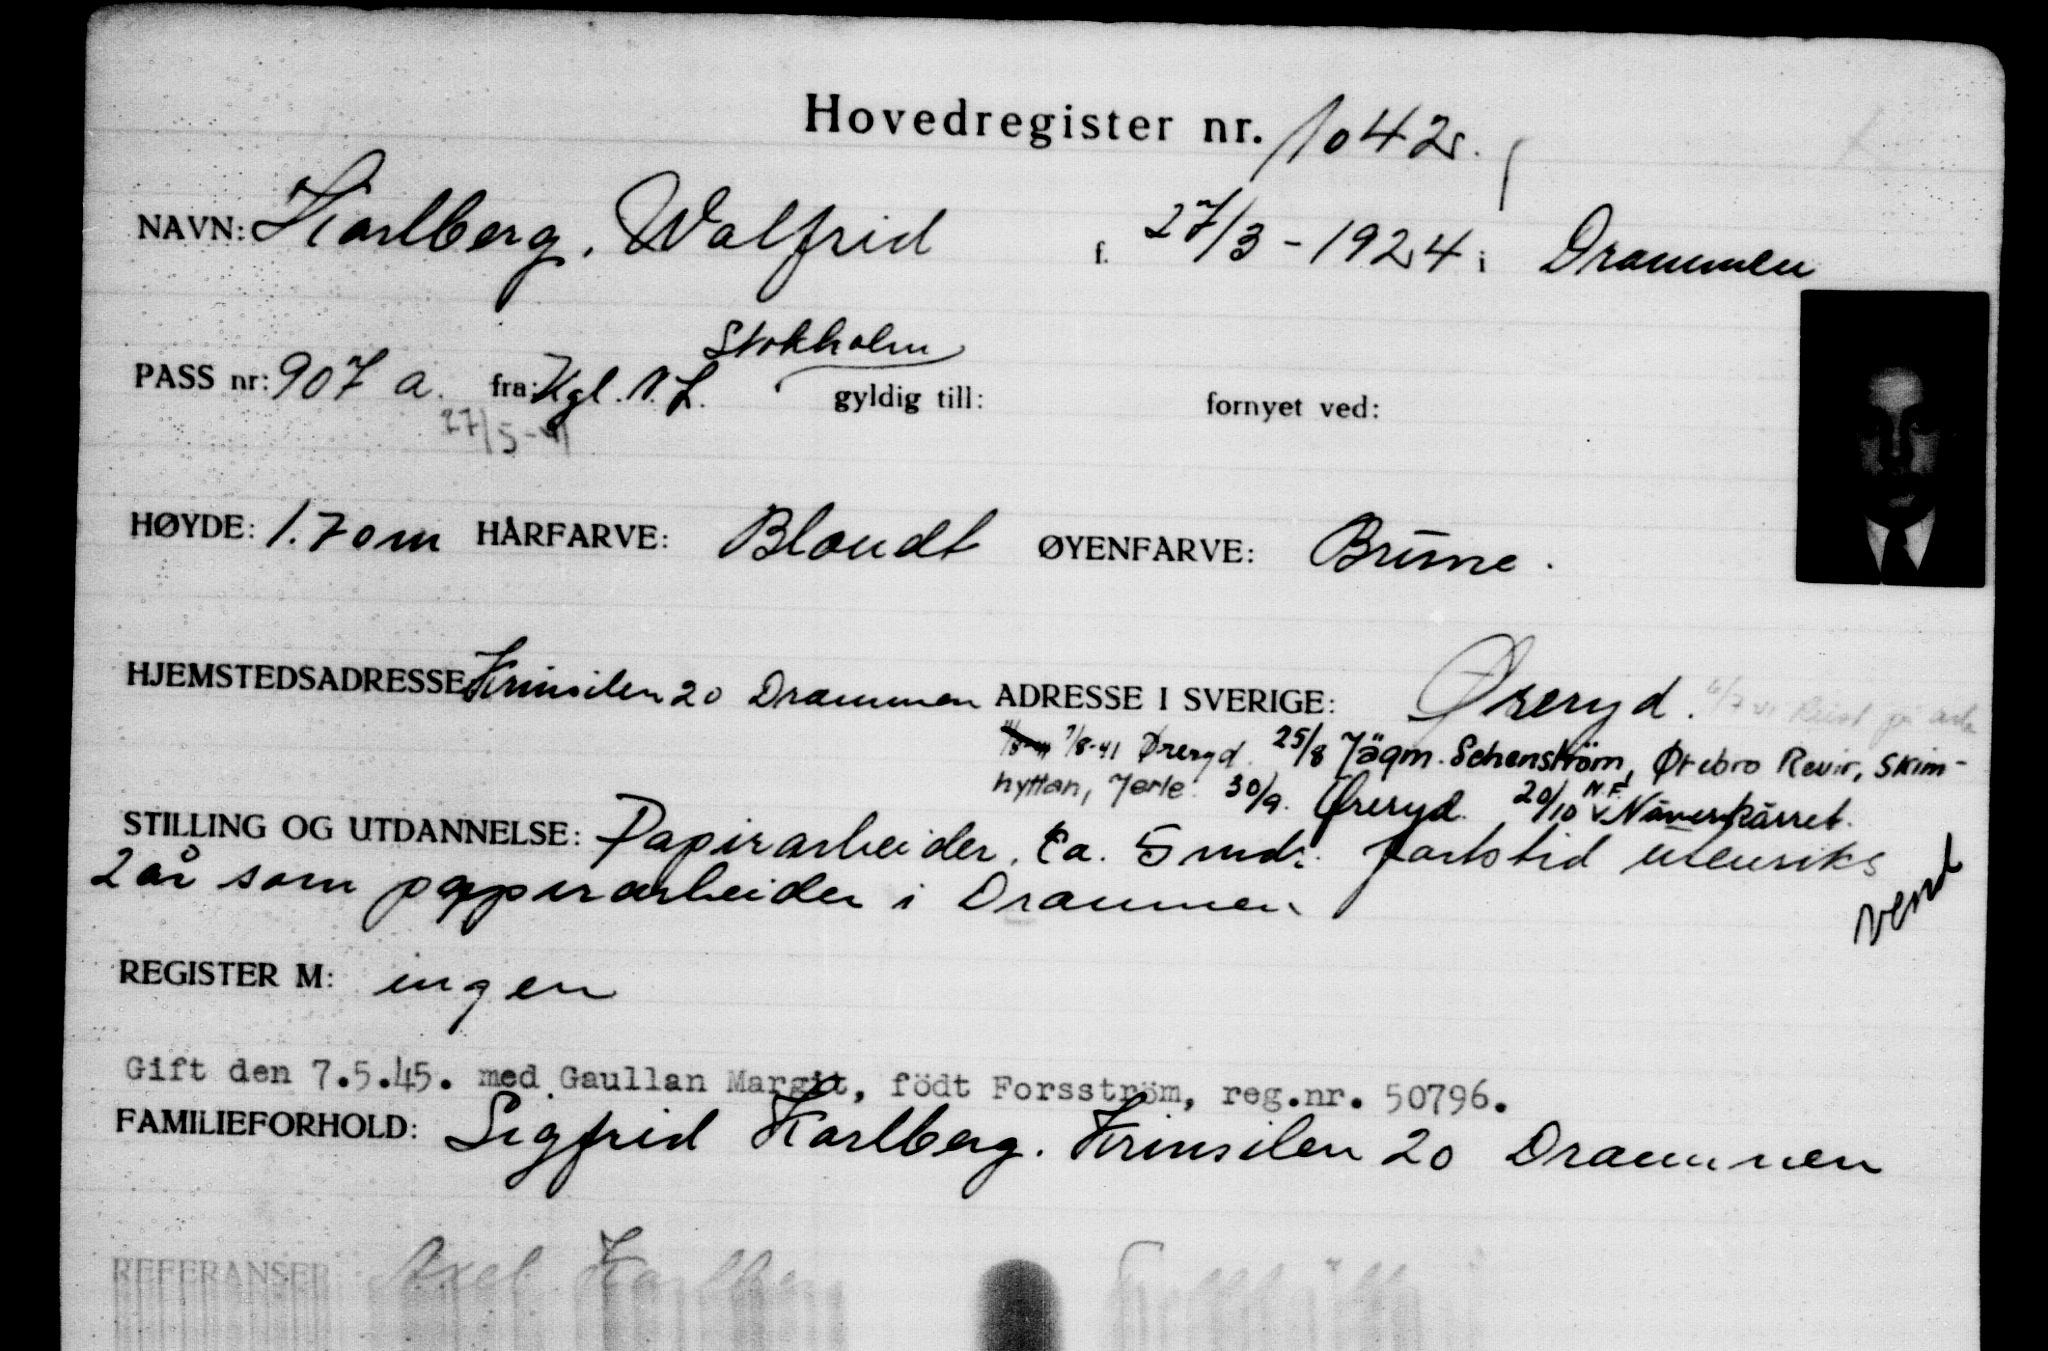 Hovedregister nr. 1042.
NAVN: Karlberg. Walfrid f. 27/3-1924 i Drammen
Stokholm
PASS nr: 907 a. fra: Kgl. N. L. gyldig till: fornyet ved:
27/5-41
HØYDE: 1.70 m HÅRFARVE: Blondt ØYENFARVE: Brune.
HJEMSTEDSADRESSE Krinsilen 20 Drammen ADRESSE I SVERIGE: Øreryd.
7/8-41 Øreryd. 25/8 Jägm. Schenström, Ørebro Revir, Skim-
hyttan, Jerle. 30/9. Øreryd. 20/10 N.F. v. Näverkärret.
STILLING OG UTDANNELSE: Papirarbeider. Ca. 5 mdr. fartstid utenriks
2 år som papirarbeider i Drammen
vend
REGISTER M: ingen
Gift den 7.5.45. med Gaullan Margit, födt Forsström, reg.nr. 50796.
FAMILIEFORHOLD: Sigfrid Karlberg. Krinsilen 20 Drammen
REFERANSER Axel Karlberg